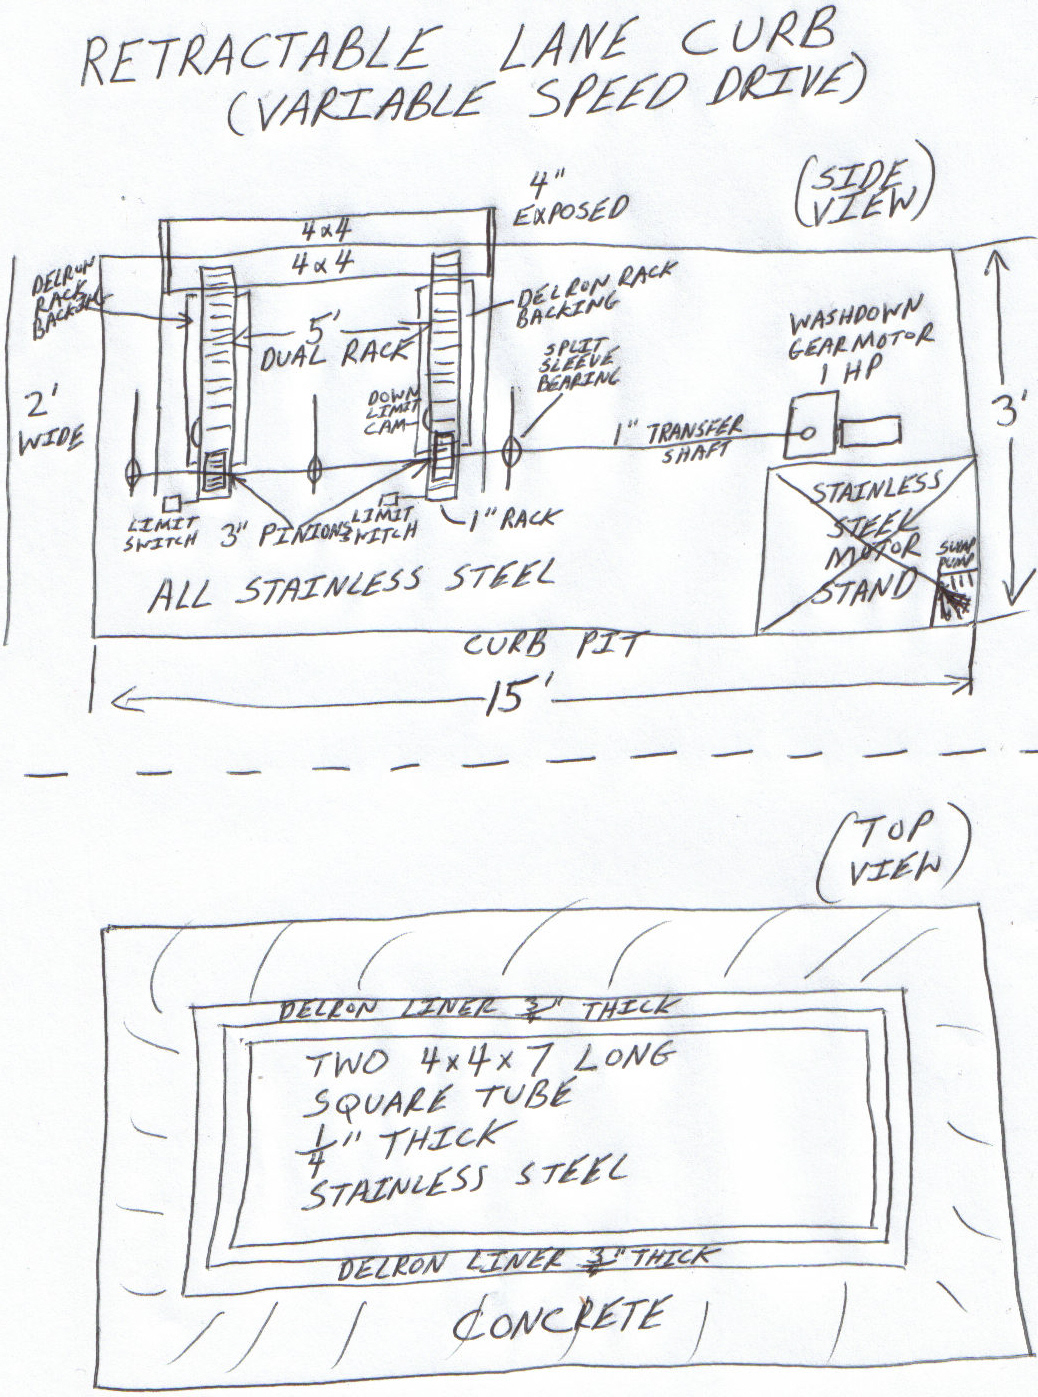 RETRACTABLE LANE CURB
(VARIABLE SPEED DRIVE)
(SIDE
VIEW)
4"
EXPOSED
4x4
4x4
DELRON
RACK
BACKING
DELRON RACK
BACKING
5'
DUAL RACK
SPLIT
SLEEVE
BEARING
WASHDOWN
GEARMOTOR
1 HP
2'
WIDE
DOWN
LIMIT
CAM
3'
1" TRANSFER
SHAFT
LIMIT
SWITCH
3" PINIONS
LIMIT
SWITCH
1" RACK
STAINLESS
STEEL
MOTOR
STAND
SUMP
PUMP
ALL STAINLESS STEEL
CURB PIT
15'
(TOP
VIEW)
DELRON LINER 3/4" THICK
TWO 4x4x7 LONG
SQUARE TUBE
1/4" THICK
STAINLESS STEEL
DELRON LINER 3/4" THICK
CONCRETE